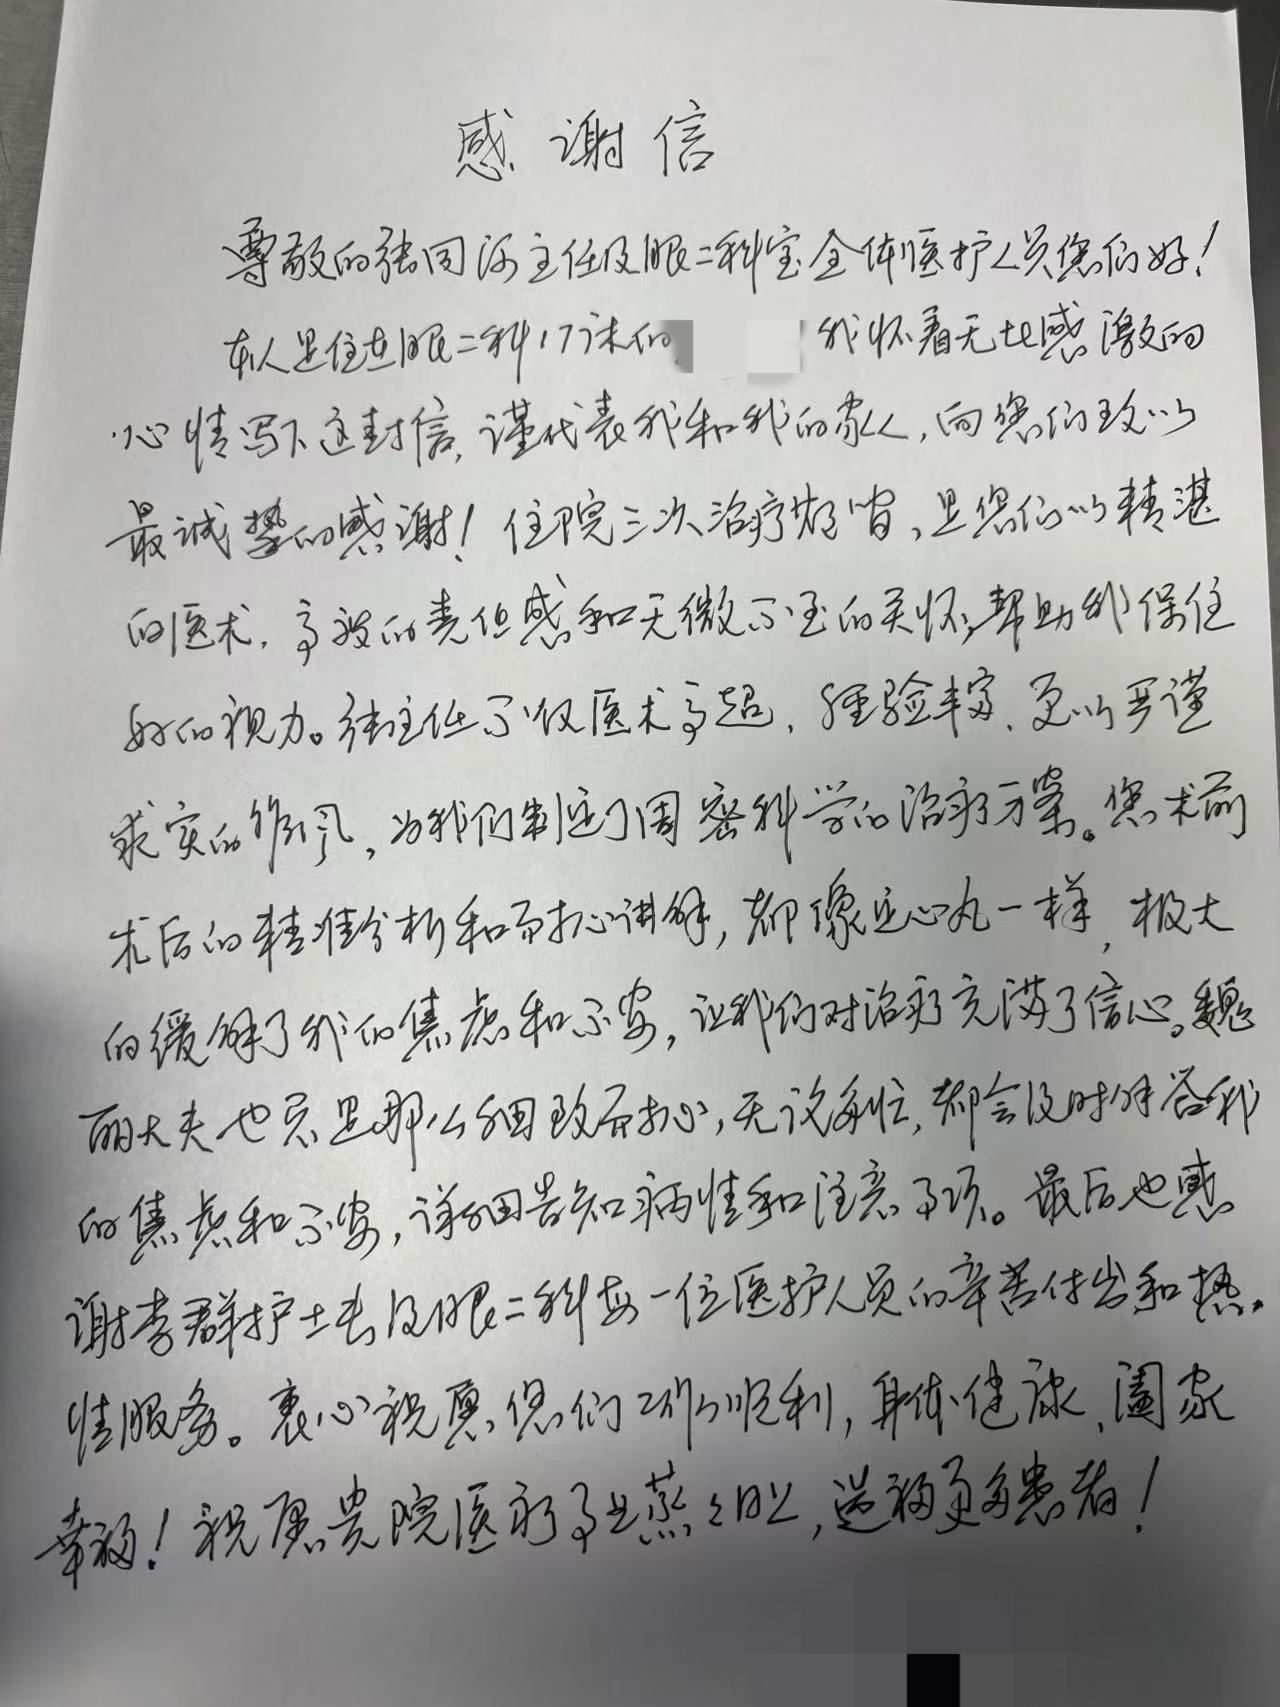 感谢信
尊敬的张同河主任及眼二科室全体医护人员您们好！
本人是住在眼二科17床的 我怀着无比感激的
心情写下这封信，谨代表我和我的家人，向您们致以
最诚挚的感谢！住院三次治疗期间，是您们以精湛
的医术，高度的责任感和无微不至的关怀，帮助我保住
好的视力。张主任不仅医术高超，经验丰富，更以严谨
求实的作风，为我们制定了周密科学的治疗方案。您术前
术后的精准分析和耐心讲解，都像定心丸一样，极大
的缓解了我的焦虑和不安，让我们对治疗充满了信心。魏
丽大夫也总是那么细致耐心，无论多忙，都会及时解答我
的焦虑和不安，详细告知病情和注意事项。最后也感
谢李群护士长及眼二科每一位医护人员的辛苦付出和热
情服务。衷心祝愿您们工作顺利，身体健康，阖家
幸福！祝愿贵院医疗事业蒸蒸日上，造福更多患者！